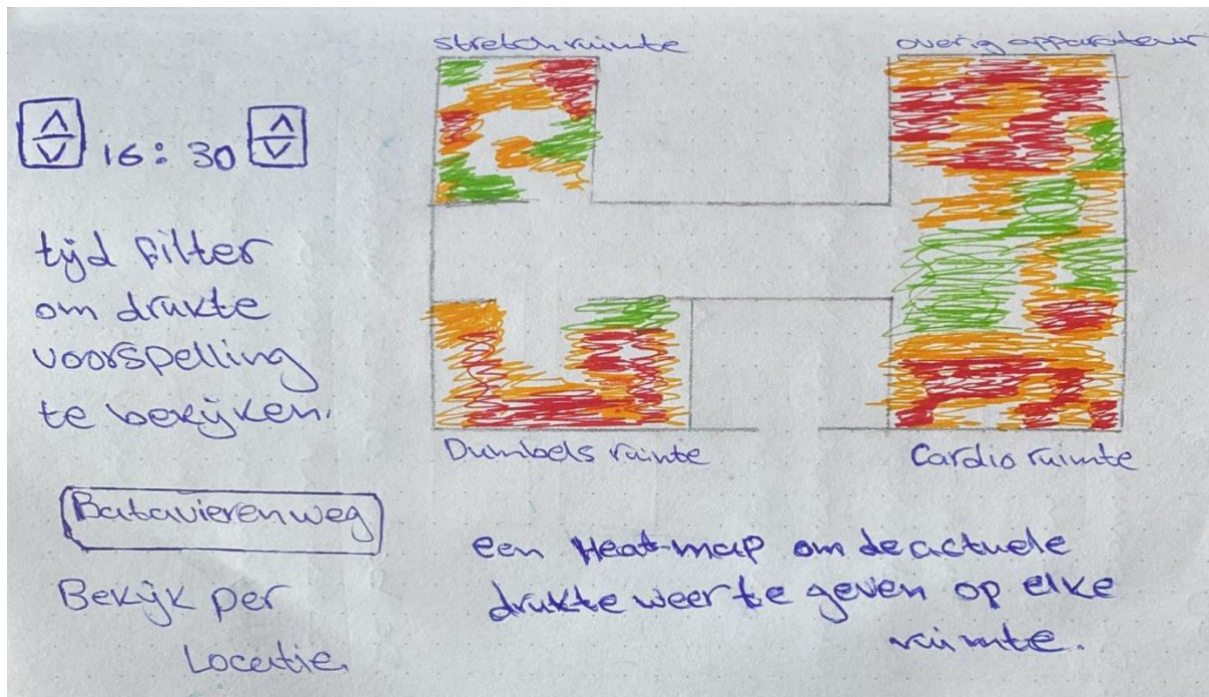 stretch ruimte
overig apparatuur
16:30
tijd filter
om drukte
voorspelling
te bekijken.
Dumbels ruimte
Cardio ruimte
Batavierenweg
Bekijk per
Locatie.
een Heat-map om de actuele
drukte weer te geven op elke
ruimte.